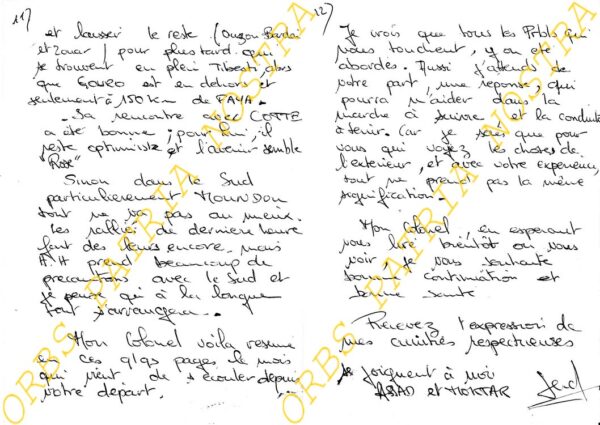 11)
et laisser le reste (Ounzou-Bardai
et Zouar) pour plus tard qui
se trouvent en plein Tibesti, alors
que GOURO est en dehors et
seulement à 150 km de FAYA.
- Sa rencontre avec COTTE
a été bonne ; pour lui, il
reste optimiste et l'avenir semble
"Rose"
Sinon dans le Sud
particulierement MOUNDOU
tout ne va pas au mieux.
Les ralliés du derniere heure
font des leurs encore. mais
A.H prend beaucoup de
precautions avec le Sud et
je pense qu'à la longue
tout s'arrangera.
Mon Colonel voila resumé
en ces qlqs pages le mois
qui vient de s'écouler depuis
votre départ.
12)
Je crois que tous les Prbls qui
nous touchent, y on été
abordés. Aussi j'attends de
votre part, une réponse, qui
pourra m'aider dans la
marche à suivre et la conduite
à tenir. Car je sais que pour
vous qui voyez les choses de
l'exterieur, et avec votre experience,
tout ne prend pas la même
signification.
Mon Colonel, en esperant
vous lire bientôt ou vous
voir, je vous souhaite
bonne continuation et
bonne santé
Recevez l'expression de
mes amitiés respectueuses
se joignent à moi
ABAD et MOKTAR
ORBS PATRIA NOSTRA
ORBS PATRIA NOSTRA